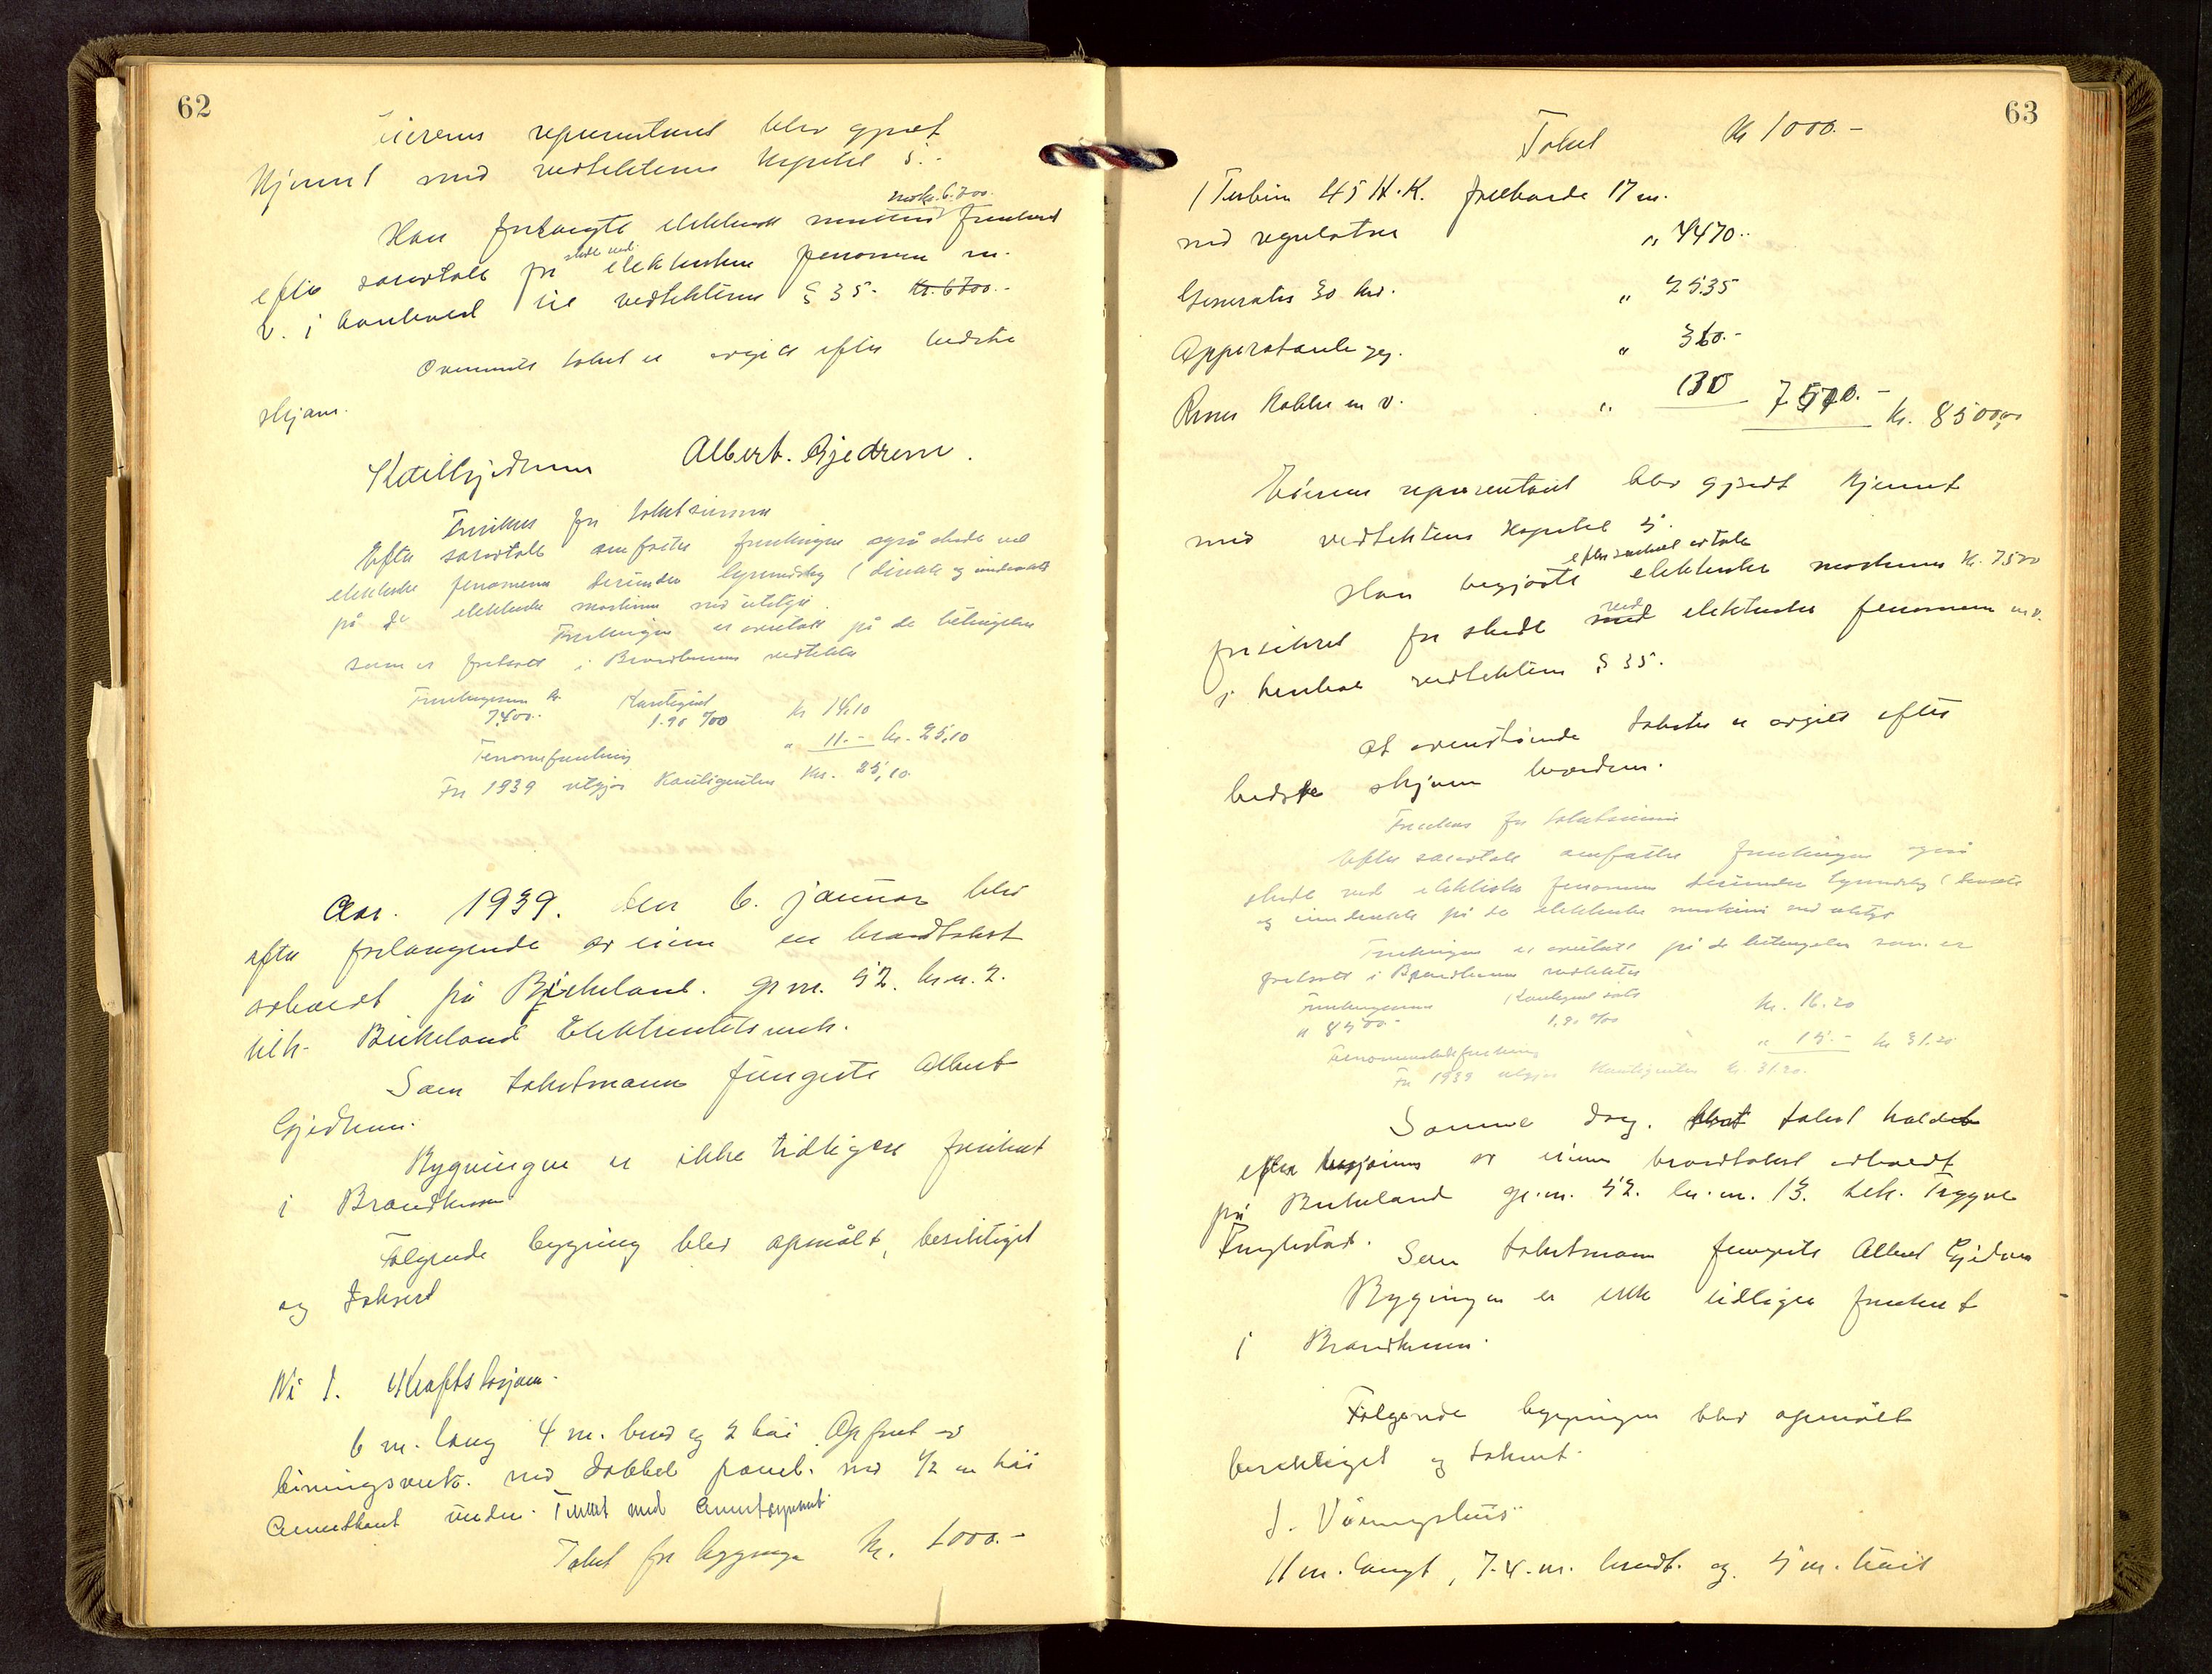 62
Eierens representant blev gjort
kjennt med vedtektenes kapitel 5.
maski. 6.700.
Han forlangte elektrisk forsikret
skade ved
efter særavtale for elektriske fenomen m.
v. i henhold til vedtektenes § 35. Kr. 6700.-
Ovennevnte takst er avgitt efter bedste
skjønn.
Albert. Gjedrem.
Forsikres for takstsummen
Efter særavtale omfatter forsikringen også skade ved
elektriske fenomener herunder lynnedslag (direkte og indirekte
på de elektriske maskiner med utstyr.
Forsikringen er avsluttet på de betingelser
som er fastsatt i Brandkassens vedtekter
Forsikringssum kr. Kontigent
7400.- 1.90 ‰ kr 14.10
Fenomenforsikring " 11.- kr. 25.10
For 1939 utgjør kontigenten kr. 25,10
Aar. 1939. den 6. januar blev
efter forlangende av eieren en brandtakst
avholdt på Birkeland. gr.nr. 52. br.nr. 2.
tilh. Birkeland Elektrisitetsverk.
Som takstmann fungerte Albert
Gjedrem.
Bygningen er ikke tidligere forsikret
i Brandkassen
Følgende bygning blev opmålt, besiktiget
og taksert
No 1. Kraftstasjon.
6 m. lang 4 m. bred og 2 høi. Opført av
bindingsverk. med dobbel panel. med 1/2 m høi
Cementkant under. Tekket med
Takst for bygningen kr. 1000.-
63
Takst kr 1000.-
1 Turbin 45 H.K. fallhøide 17 m.
med regulator " 4470.-
Generator 30 kw. " 2535
Apparattavle " 360.-
m v. " 130 7500.- kr. 8500,00
Eierens representant blev gjordt kjennt
med vedtektens kapitel 5.
efter særskilt avtale
Han begjærte elektriske maskiner kr. 7500
ved
forsikret for skade med elektriske fenomener m.v.
i henhold vedtektene § 35.
At ovenstående takster er avgitt efter
bedste skjønn bevidnes.
Forsikres for takstsummen
Efter særavtale omfatter forsikringen også
skade ved elektriske fenomener herunder lynnedslag (direkte
og indirekte på de elektriske maskiner med utstyr
Forsikringen er avsluttet på de betingelser som er
fastsatt i Brandkassens vedtekter
Forsikringssum Kontigent sats
" 8500- 1.90 ‰ kr. 16.20
Fenomenskadeforsikring " 15.- kr 31.20
For 1939 utgjør kontigenten kr. 31.20.
Samme dag. blev takst holdet
efter begjæring av eieren brandtakst avholdt
på Birkeland gr.nr. 52. br.nr. 13. tilh. Trygve
Fuglestad.
Som takstmann fungerte Albert Gjedrem
Bygningen er ikke tidligere forsikret
i Brandkassen.
Følgende bygningen blev opmålt
besiktiget og taksert.
1. Våningshus
11 m. langt, 7.4. m. bredt. og 5 m. høit